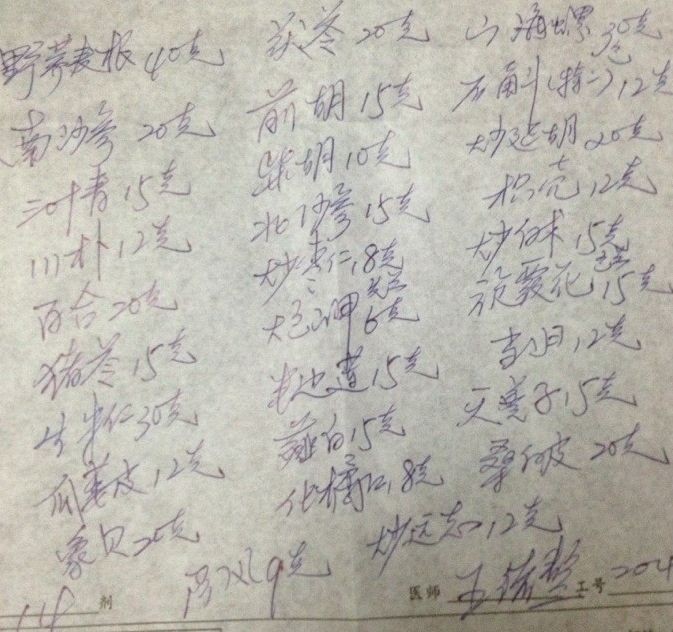 野荞麦根40克 茯苓20克 山海螺30克
南沙参20克 前胡15克 石斛(特二)12克
三叶青15克 柴胡10克 炒延胡20克
川朴12克 北沙参15克 枳壳12克
百合20克 炒枣仁18克 炒白术15克
猪苓15克 6克 15克
生米仁30克 半边莲15克 当归12克
瓜蒌皮12克 薤白15克 15克
象贝20克 化橘红18克 桑白皮20克
9克 炒远志12克
14剂 医师 王 工号 204